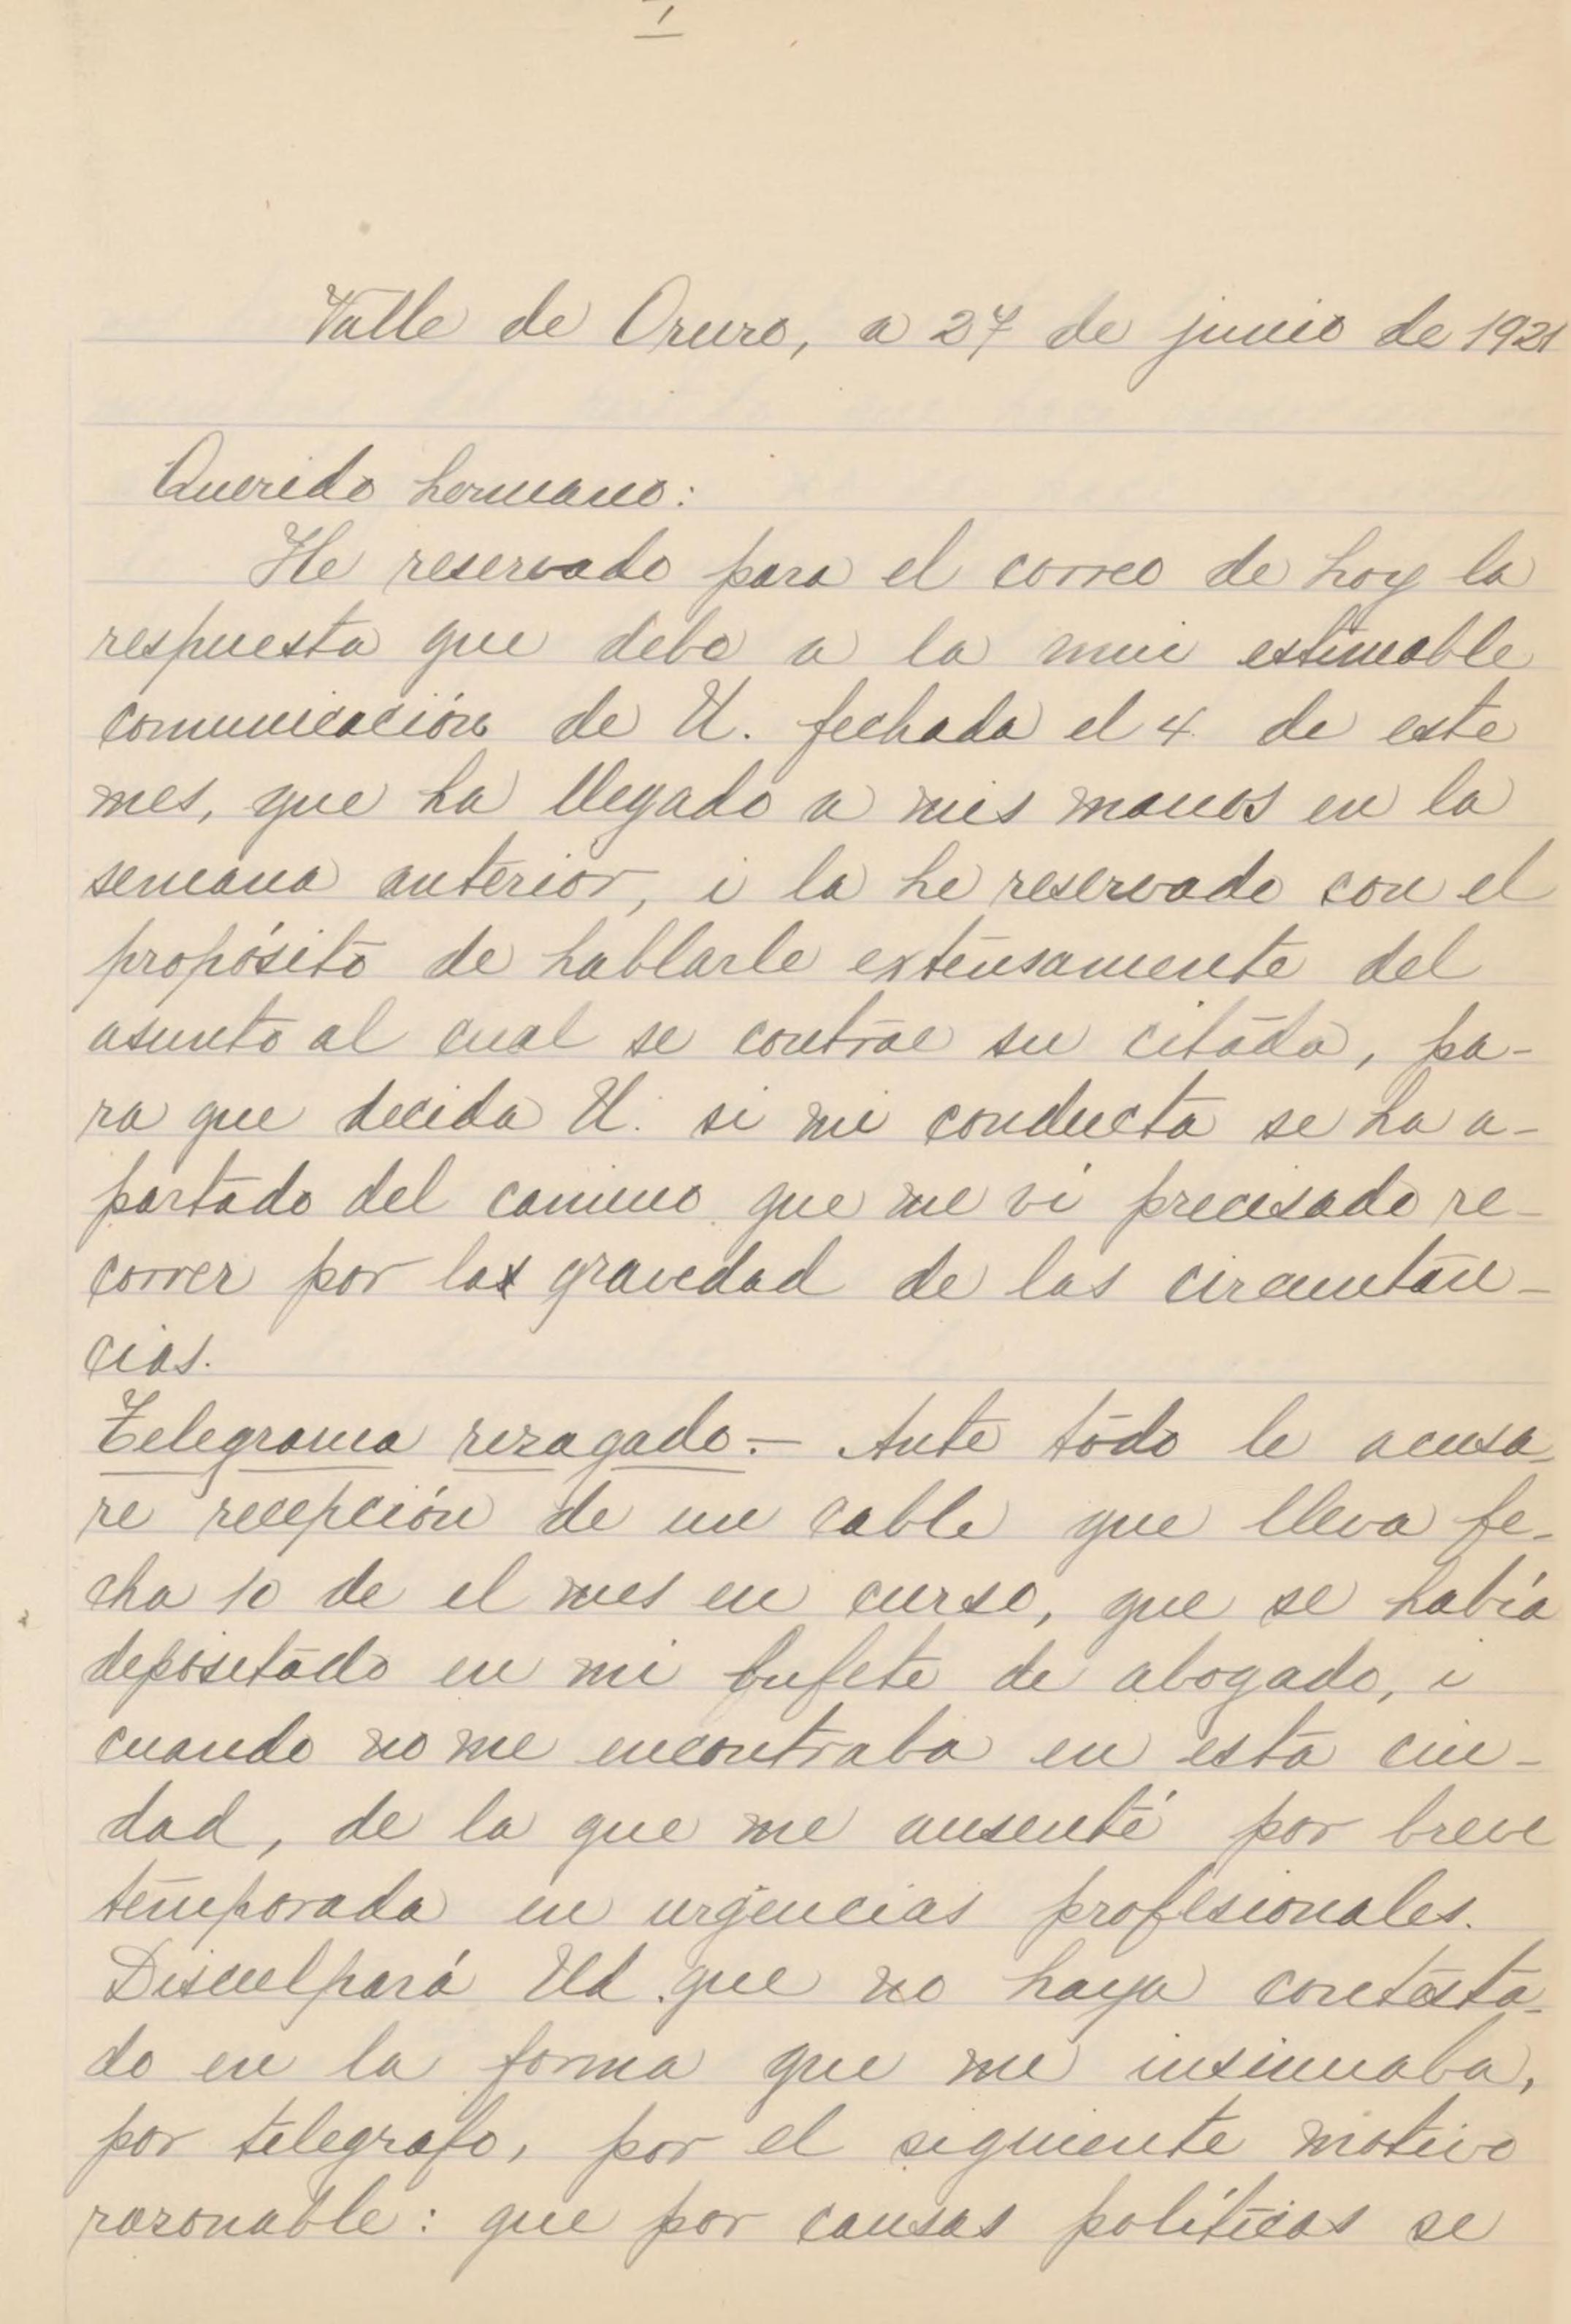 1
Valle de Oruro, a 27 de junio de 1921
Querido hermano:
He reservado para el correo de hoy la
respuesta que debo a la mui estimable
comunicación de U. fechada el 4 de este
mes, que ha llegado a mis manos en la
semana anterior, i la he reservado con el
propósito de hablarle extensamente del
asunto al cual se contrae su citada, pa-
ra que decida U. si mi conducta se ha a-
partado del camino que me ví precisado re-
correr por la gravedad de las circuntan-
cias.
Telegrama rezagado.- Ante todo le acusa-
re recepción de un cable que lleva fe-
cha 10 de el mes en curso, que se había
depositado en mi bufete de abogado, i
cuando no me encontraba en esta ciu-
dad, de la que me ausenté por breve
temporada en urgencias profesionales.
Disculpará Ud. que no haya contesta-
do en la forma que me insinuaba,
por telegrafo, por el siguiente motivo
razonable: que por causas políticas se